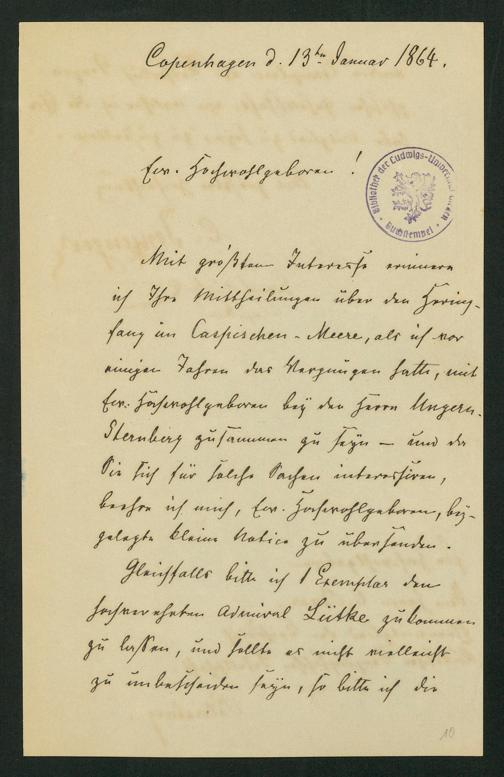 Copenhagen d. 13ten Januar 1864.
Ew. Hochwohlgeboren!
Bibliothek der Ludwigs-Universität Giessen
Buchstempel
Mit größtem Interesse erinnere
ich Ihre Mittheilungen über den Herings-
fang im Caspischen-Meere, als ich vor
einigen Jahren das Vergnügen hatte, mit
Ew. Hochwohlgeboren bey den Herrn Ungern-
Sternberg zusammen zu seyn – und da
Sie sich für solche Sachen interessiren,
beehre ich mich, Ew. Hochwohlgeboren, bey-
gelegte kleine Notice zu übersenden.
Gleichfalls bitte ich 1 Exemplar dem
hochverehrten Admiral Lütke zukommen
zu lassen, und sollte es nicht vielleicht
zu unbescheiden seyn, so bitte ich die
10